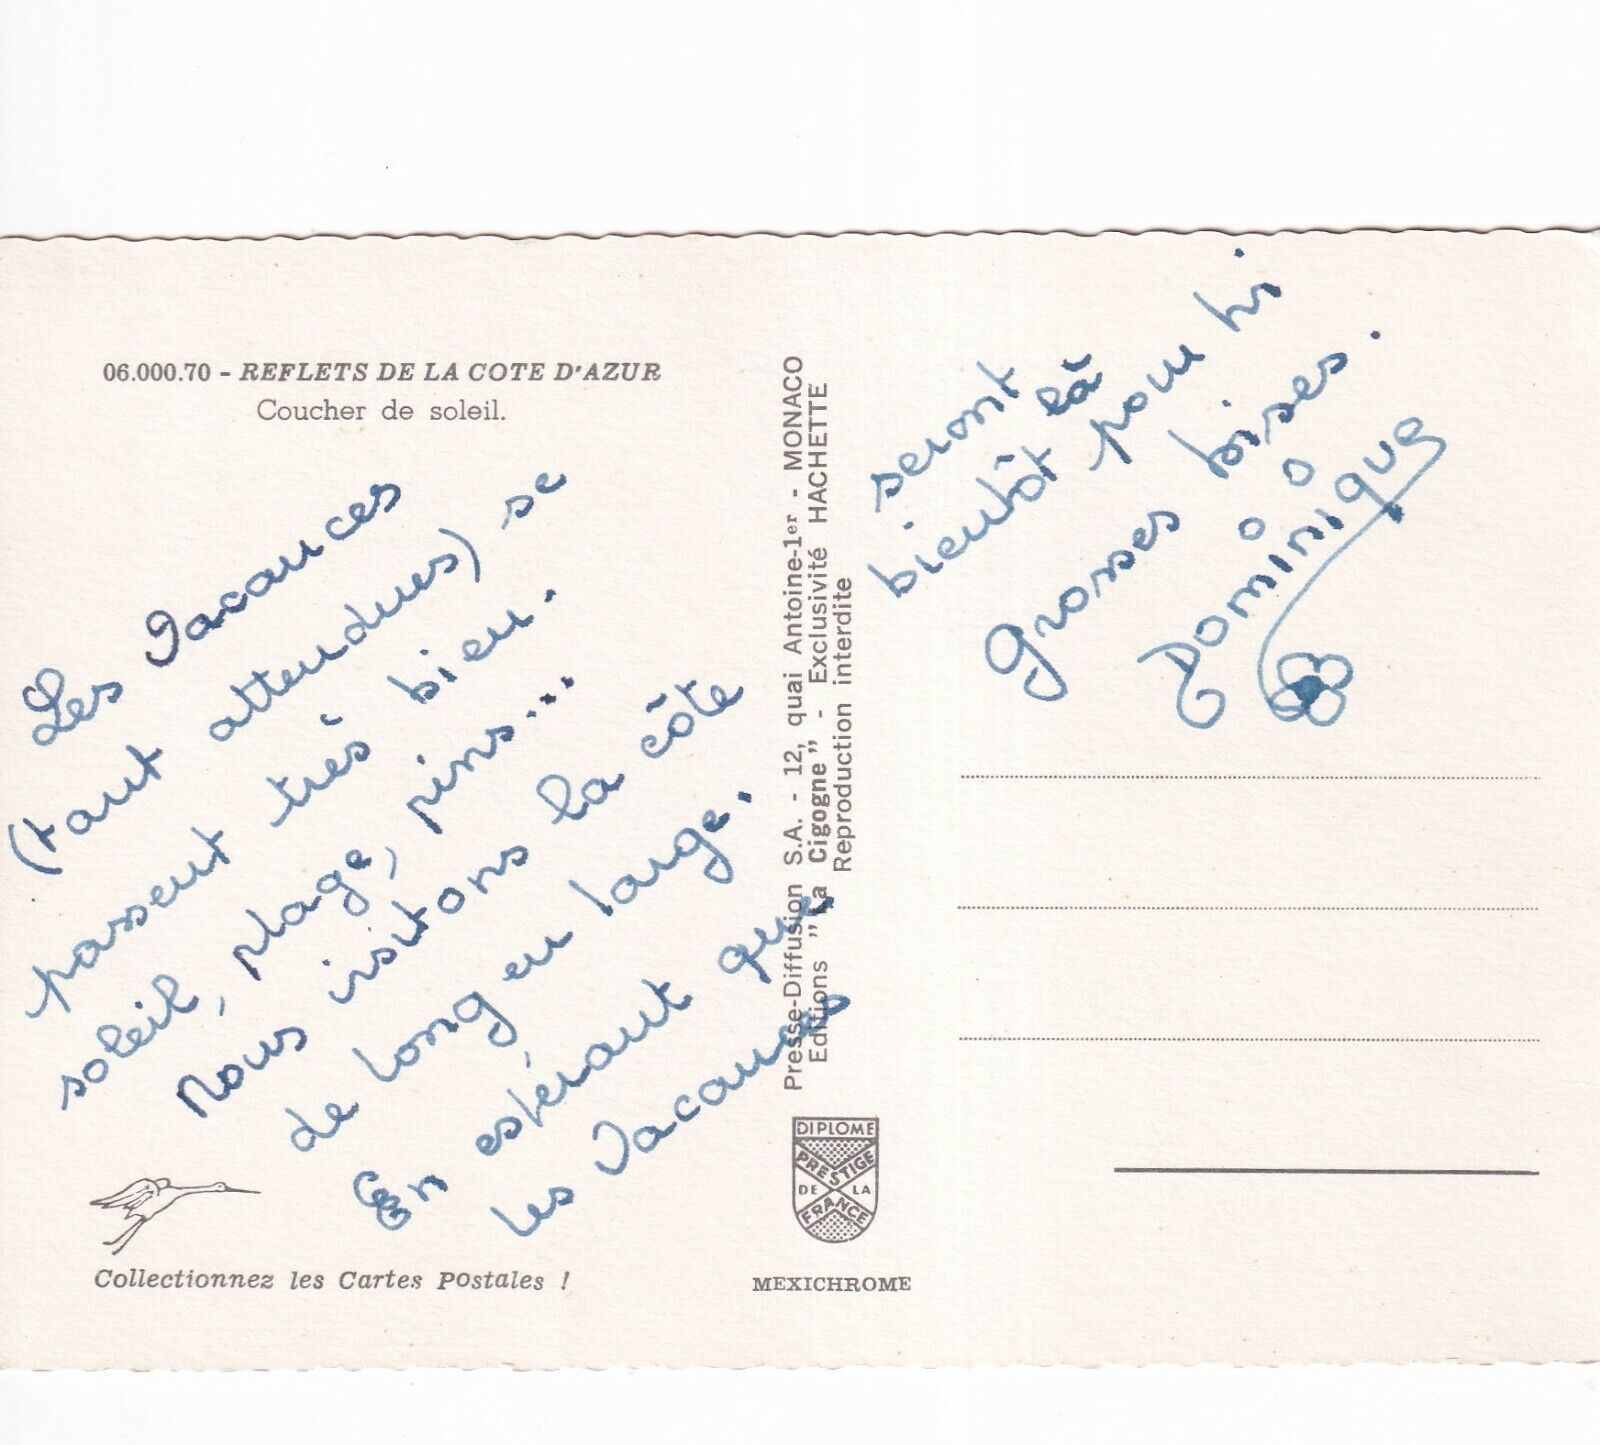 06.000.70 - REFLETS DE LA COTE D'AZUR
Coucher de soleil.
Les vacances
(tant attendues) se
passent très bien.
soleil, plage, pins...
Nous visitons la côte
de long en large.
En espérant que
les vacances
seront
bientôt là pour toi
Grosses bises.
Dominique
Presse-Diffusion S.A. - 12, quai Antoine-1er - MONACO
Editions "La Cigogne" - Exclusivité HACHETTE
Reproduction interdite
DIPLOME
PRESTIGE
DE LA
FRANCE
Collectionnez les Cartes Postales !
MEXICHROME